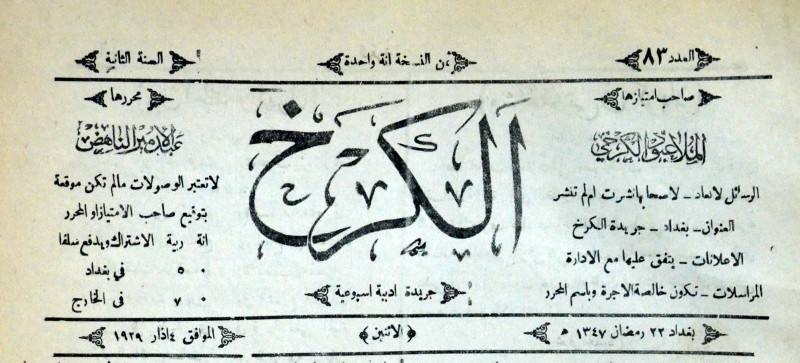 العدد ٨٣
ثمن النسخة انة واحدة
السنة الثانية
صاحب امتيازها
الملا عبود الكرخي
الرسائل لاتعاد ــ لاصحابها نشرت ام لم تنشر
العنوان ــ بغداد ــ جريدة الكرخ
الاعلانات ــ يتفق عليها مع الادارة
المراسلات ــ تكون خالصة الاجرة وباسم المحرر
الكرخ
جريدة ادبية اسبوعية
محررها
عبدالامير الناهض
لاتعتبر الوصولات مالم تكن موقعة
بتوقيع صاحب الامتياز او المحرر
انة ربية الاشتراك ويدفع سلفا
٠ ٥ في بغداد
٠ ٧ فى الخارج
بغداد ٢٢ رمضان ١٣٤٧ هـ
الاثنين
الموافق ٤ اذار ١٩٢٩